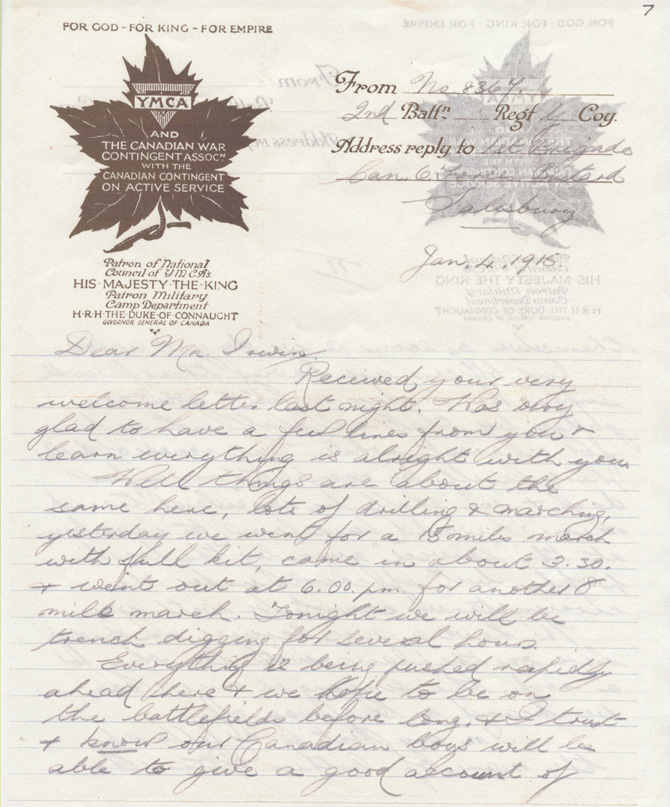 7
FOR GOD - FOR KING - FOR EMPIRE
YMCA
AND
THE CANADIAN WAR
CONTINGENT ASSOCN
WITH THE
CANADIAN CONTINGENT
ON ACTIVE SERVICE
Patron of National
Council of YMCAs.
HIS·MAJESTY·THE·KING
Patron Military
Camp Department
H·R·H·THE·DUKE OF·CONNAUGHT
GOVERNOR GENERAL OF CANADA
From No. 8367.
2nd Battn Regt Coy.
Address reply to 1st Brigade
Can.
Salisbury
Jan. 4, 1915
Dear Mr. Irwin,
Received your very
welcome letter last night. Was very
glad to have a few lines from you &
learn everything is alright with you.
Well things are about the
same here, lots of drilling & marching,
yesterday we went for a 15 miles march
with full kit, came in about 3.30.
& went out at 6.00 p.m. for another 8
mile march. Tonight we will be
trench digging for several hours.
Everything is being pushed rapidly
ahead here & we hope to be on
the battlefields before long, & I trust
& know our Canadian boys will be
able to give a good account of